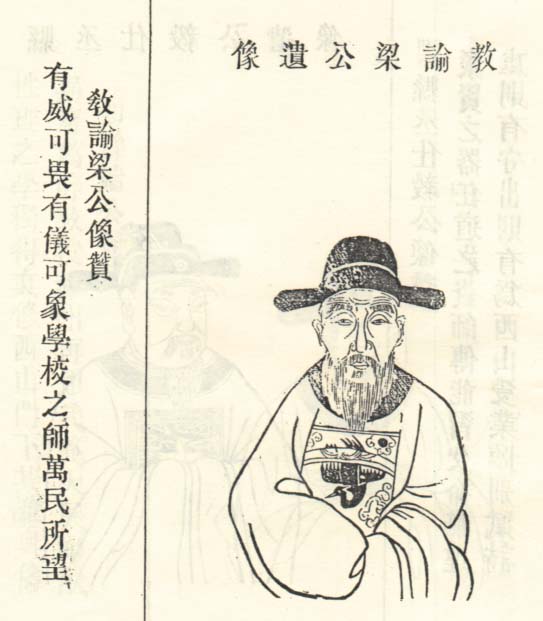 教諭梁公遺像
敎諭梁公像贊
有威可畏有儀可象學校之師萬民所望